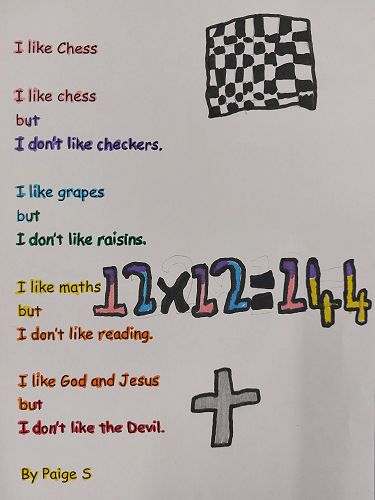 I like Chess
I like chess
but
I don't like checkers.
I like grapes
but
I don't like raisins.
I like maths
but
I don't like reading.
12x12=144
I like God and Jesus
but
I don't like the Devil.
By Paige S